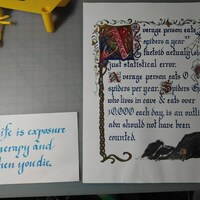 verage person eats
spiders a year"
factoid actualy is
just statistical error.
Average person eats 0
spiders per year. Spiders G
who lives in cave & eats over
10,000 each day, is an outli
adn should not have been
counted.
ife is exposure
herapy and
hen you die.